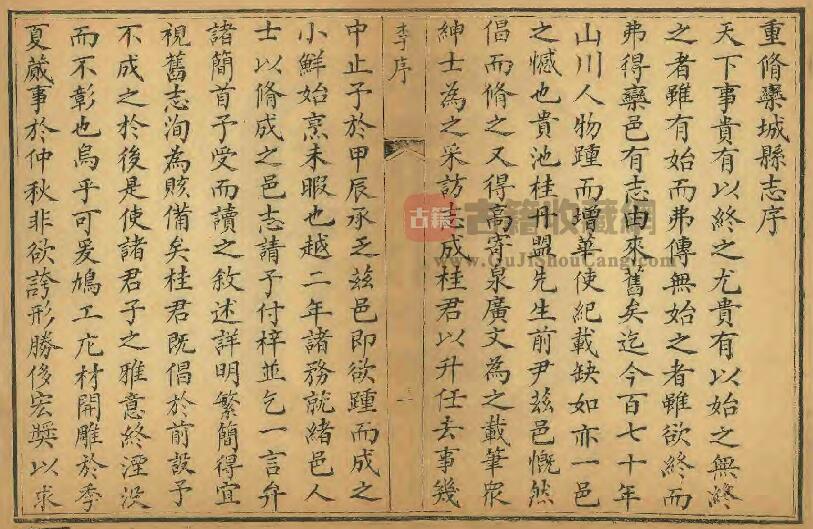 重脩欒城縣志序
天下事貴有以終之尤貴有以始之無終
之者雖有始而弗傳無始之者雖欲終而
弗得欒邑有志由來舊矣迄今百七十年
山川人物踵而增華使紀載缺如亦一邑
之憾也貴池桂丹盟先生前尹兹邑慨然
倡而脩之又得高寄泉廣文為之載筆眾
紳士為之采訪志成桂君以升任去事幾
李序
一
中止予於甲辰承乏兹邑即欲踵而成之
小鮮始烹未暇也越二年諸務就緒邑人
士以脩成之邑志請予付梓並乞一言弁
諸簡首予受而讀之敘述詳明繁簡得宜
視舊志洵為賅備矣桂君既倡於前設予
不成之於後是使諸君子之雅意終湮沒
而不彰也烏乎可爰鳩工庀材開雕於季
夏蕆事於仲秋非欲誇形勝侈宏獎以求
古籍
古籍收藏網
www.GuJiShouCang.com